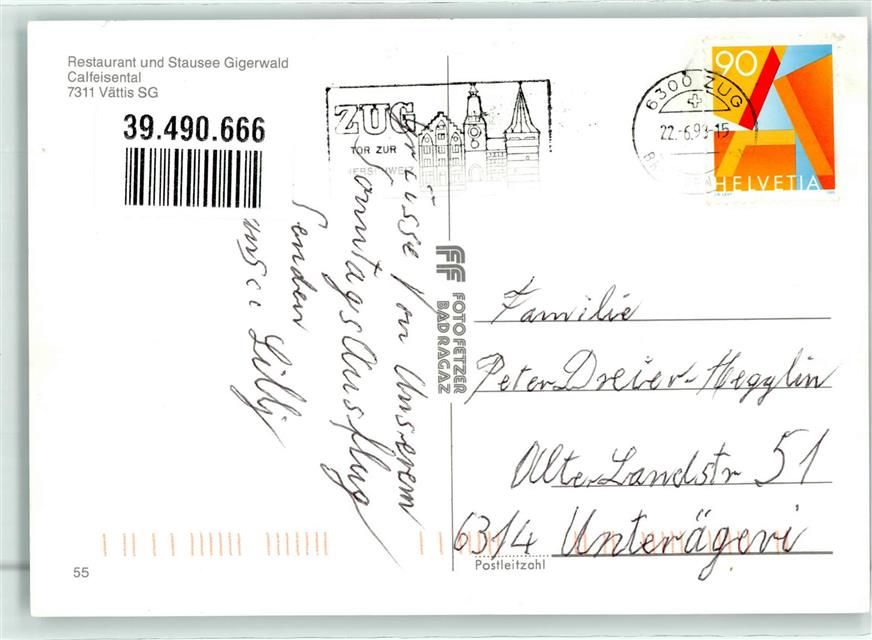 Restaurant und Stausee Gigerwald
Calfeisental
7311 Vättis SG
39.490.666
ZUG
TOR ZUR
6300 ZUG
22.-6.99-15
90
HELVETIA
Grüsse von Unserem
Sonntags Ausflug
Senden
Lilly
FF FOTO FETZER
BAD RAGAZ
Familie
Peter Dreier-Hegglin
Alte Landstr 51
6314 Unterägeri
Postleitzahl
55